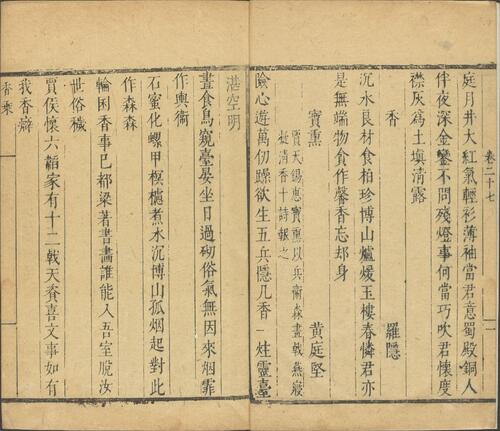 卷二十七
庭月井大紅氣輕衫薄袖當君意蜀殿銅人
伴夜深金鑾不問殘燈事何當巧吹君懷度
襟灰爲土填清露
香
羅隱
沉水良材食柏珍博山爐煖玉樓春憐君亦
是無端物食作馨香忘却身
寳熏
黃庭堅
賈天錫惠寳熏以兵衛森畫戟燕寢
凝清香十詩報之
險心遊萬仞躁欲生五兵隱几香一炷靈臺
湛空明
晝食鳥窺臺晏坐日過砌俗氣無因來烟霏
作輿衛
石蜜化螺甲榠樝煮水沉博山孤烟起對此
作森森
輪囷香事已郁梁著書畫誰能入吾室脫汝
世俗穢
賈侯懷六韜家有十二戟天資喜文事如有
我香癖
香乘